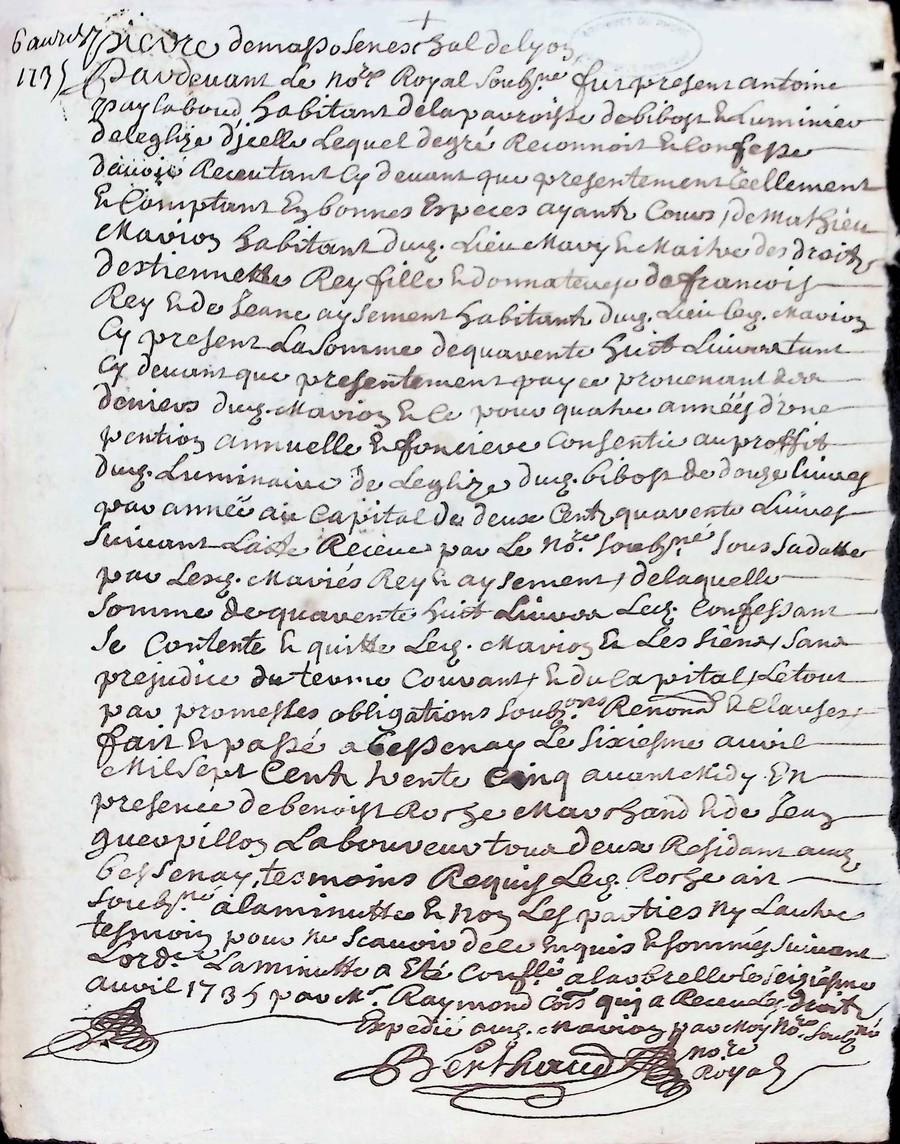 6 avril
1735
pierre demaso seneschal delyon
ARCHIVES DU
Pardevant Le nore Royal Soubsne fut present antoine
paylaboud habitant delaparoisse debibost & Luminier
deleglize d'jcelle Lequel degré Reconnoit & Confesse
davoir Receutant Cy devant que presentement réellement
& Comptant En bonnes Especes ayants Cours, de Mathieu
Marion habitant dug. Lieu Mary & Maitre des droits
destiennette Rey fille & donnaterese de francois
Rey & de Jeane aysement habitants dug. Lieu leg. Marion
Cy present La Somme dequarente huit Livres tant
Cy devant que presentement payee provenant des
deniers dug. Marion & Ce pour quatre années d'une
pention annuelle & fonciere Consentie au proffit
dug. Luminaire de Leglize dug. bibost de douze livres
par année au Capital de deux Cents quarente Livres
Suivant Lacte Receue par Le nore. Soubsné Sous Sa datte
par Lesg. Mariés Rey & aysement, delaquelle
Somme dequarente huit Livres Leg. Confessant
Se Contente & quitte Leg. Marion & Les Siens, Sans
prejudice du terme Courant, & du Capital, Letout
par promesses obligations Soubons Renonod & Clauses,
fait & passé a Bessenay Le Sixiesme avril
Mil Sept Cents trente Cinq avant Midy En
presence de benoist Roche Marchand & de Jean
guerpillon Laboureur tous deux Residant aug.
bessenay, tesmoins Requis Leg. Roche ait
Soubsné alaminutte & non Les parties ny Lautre
tesmoin pour ne Scavoir dece Enquis & Sommés Suivant
Lorde. Laminutte a Eté Conllé alarbrelle Le Seiziesme
avril 1735 par Mr. Raymond Cois qui a Receu Les droits
Expedié aug. Marion par Moy nore. Soubsné
Berthaud nore
Royal